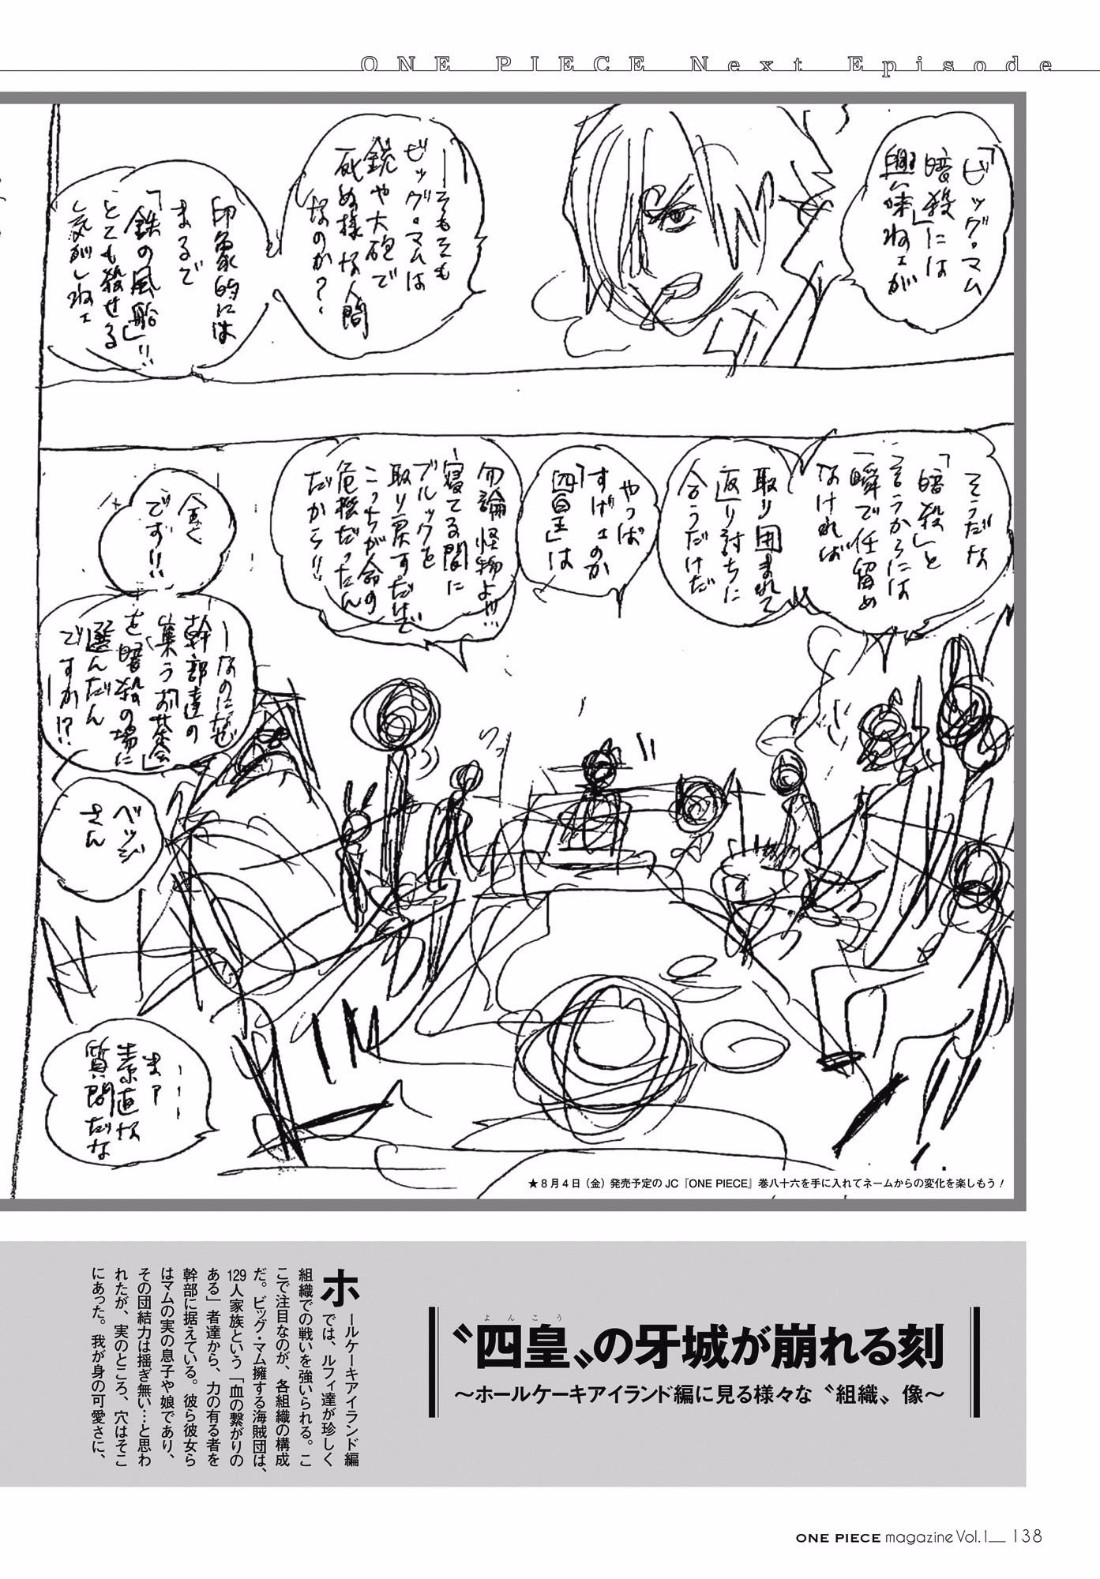 ONE PIECE Next Episode
「ビッグ・マム
暗殺」には
興味ねェが
―そもそも
ビッグ・マムは
銃や大砲で
死ぬ様な人間
なのか?
印象的には
まるで
「鉄の風船」!!
とても殺せる
気がしねェ
そうだな
「暗殺」と
言うからには
一瞬で仕留め
なければ
取り囲まれて
返り討ちに
合うだけだ
やっぱ
すげェのか
「四皇」は
勿論怪物よ!!!
寝てる間に
ブルックを
取り戻すだけで
こっちが命の
危機だったん
だから!!
全く
です!!
―なのになぜ
幹部達の
集う「お茶会」
を暗殺の場に
選んだん
ですか!?
ベッジ
さん
まァ
素直な
質問だな
★8月4日(金)発売予定のJC『ONE PIECE』巻八十六を手に入れてネームからの変化を楽しもう!
よんこう
〝四皇〟の牙城が崩れる刻
～ホールケーキアイランド編に見る様々な〝組織〟像～
ホールケーキアイランド編
では、ルフィ達が珍しく
組織での戦いを強いられる。こ
こで注目なのが、各組織の構成
だ。ビッグ・マム擁する海賊団は、
129人家族という「血の繋がりの
ある」者達から、力の有る者を
幹部に据えている。彼ら彼女ら
はマムの実の息子や娘であり、
その団結力は揺ぎ無い…と思わ
れたが、実のところ、穴はそこ
にあった。我が身の可愛さに、
ONE PIECE magazine Vol.1__ 138